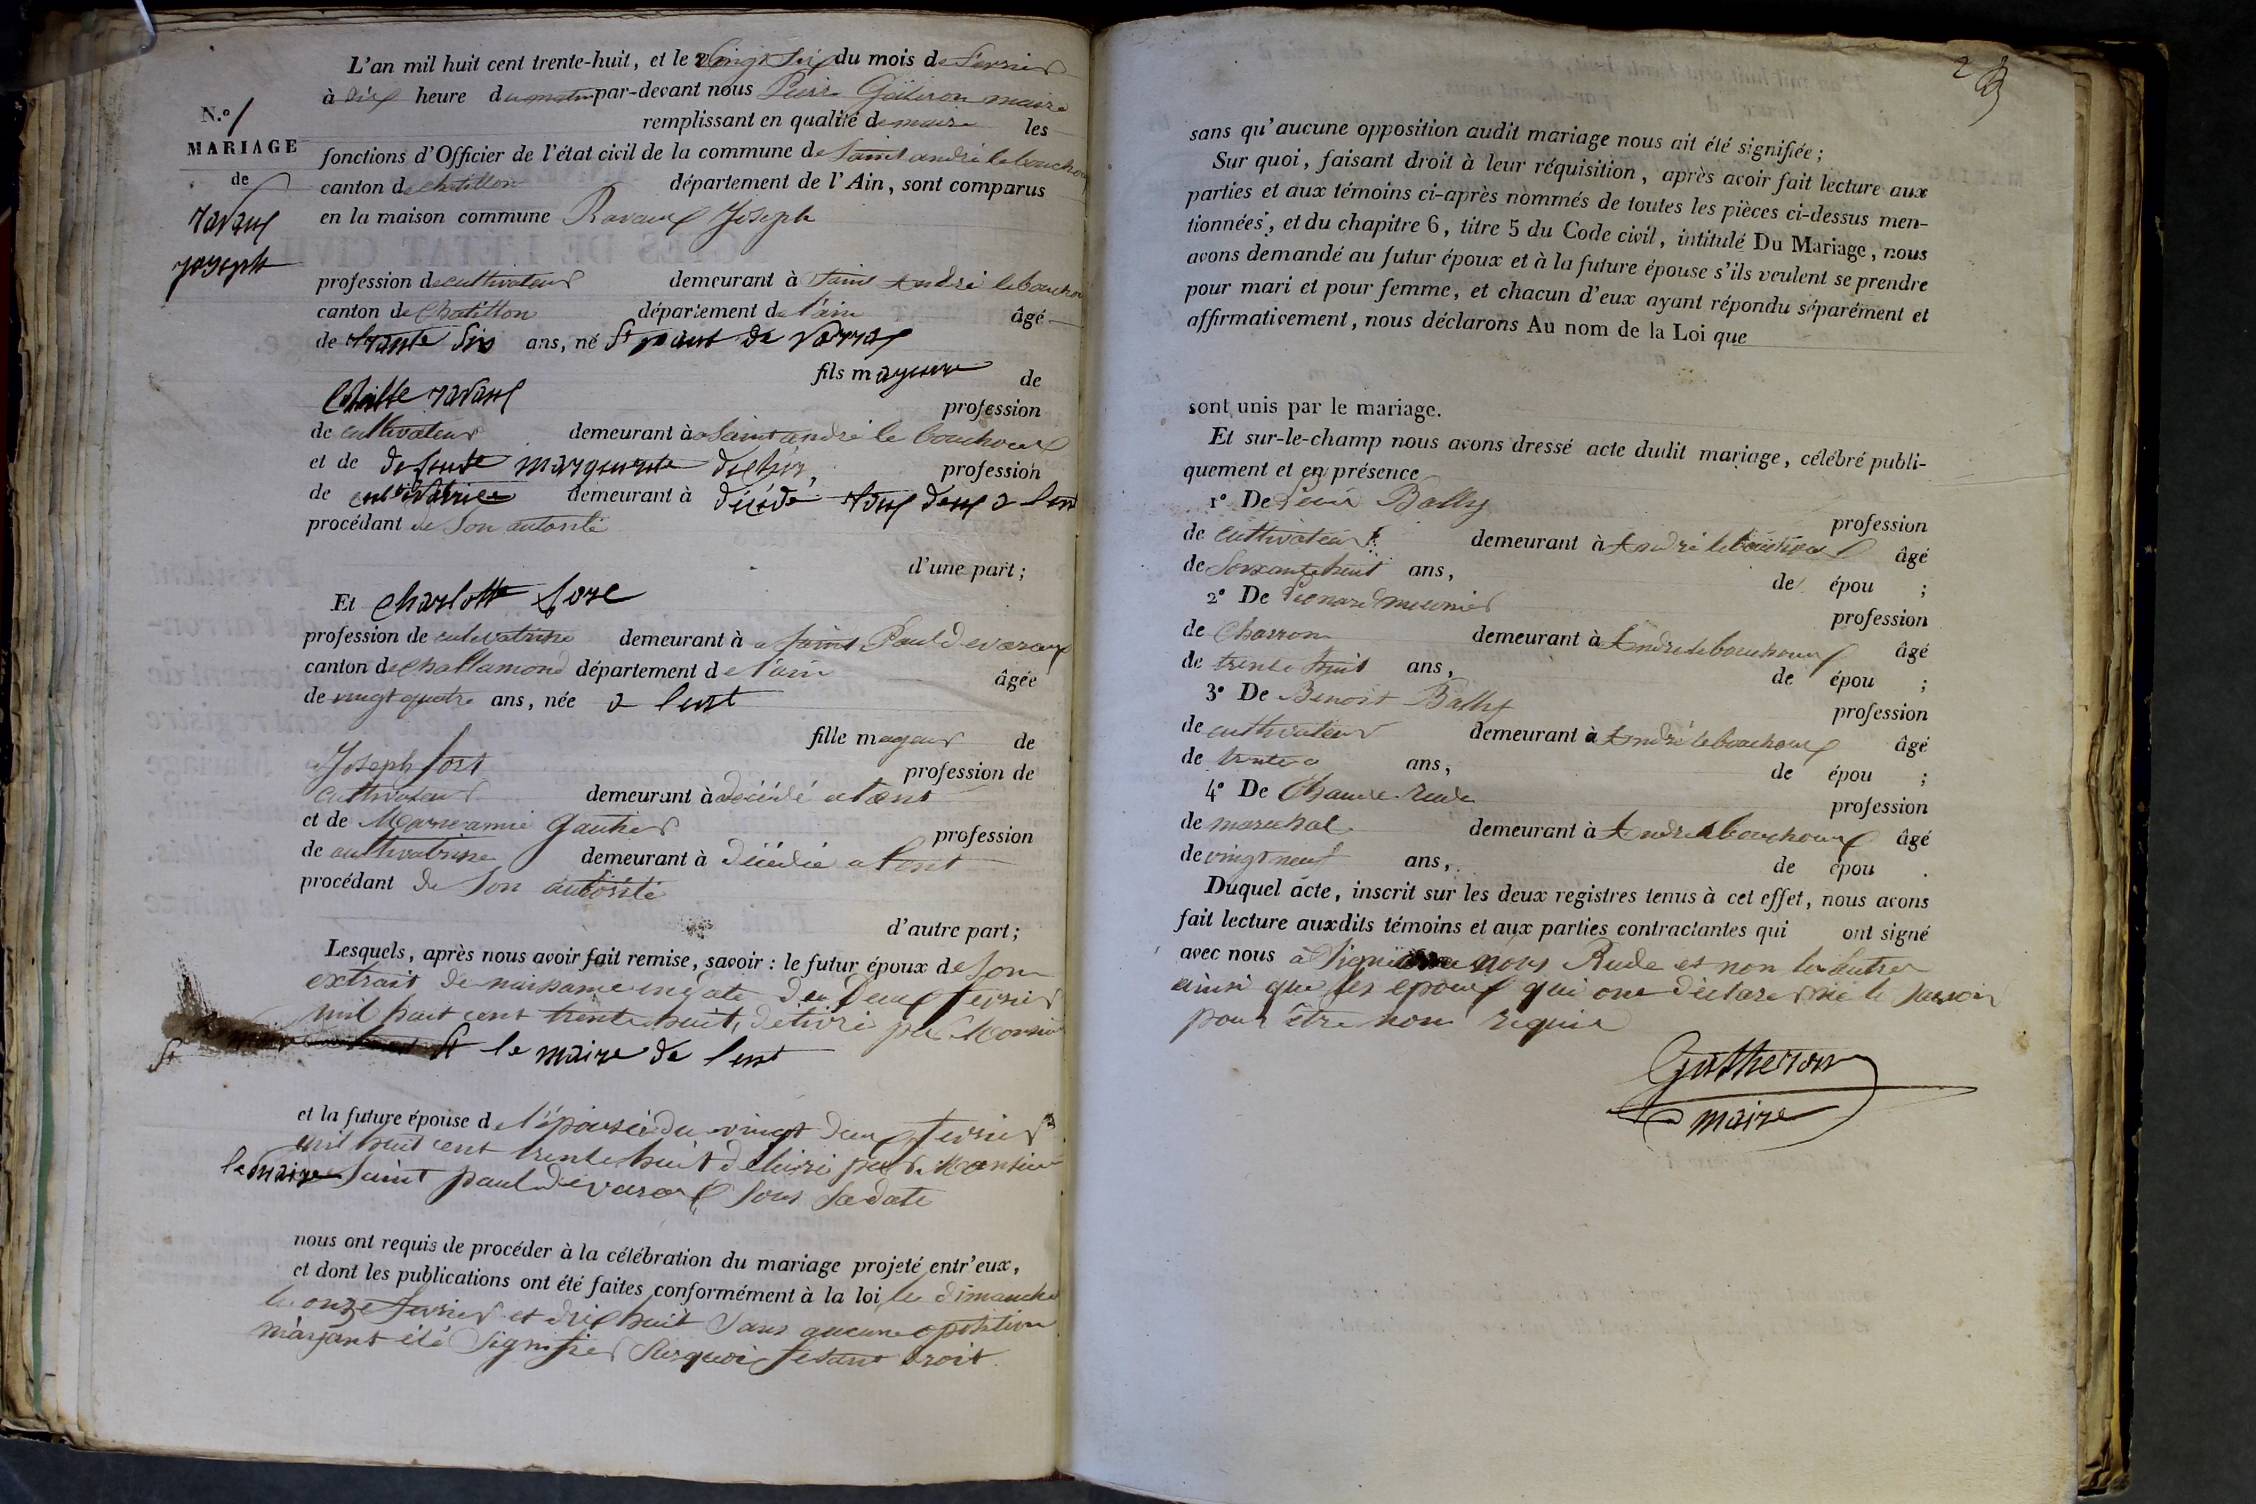 L'an mil huit cent trente-huit, et le vingt six du mois de fevrier
à dix heure du matin par-devant nous Pierre Guiteron maire
N.o 1
remplissant en qualité de maire les
MARIAGE
fonctions d'Officier de l'état civil de la commune de Saint andré le bouchoux
de
canton de chatillon département de l'Ain, sont comparus
ravaux
en la maison commune Ravaux Joseph
joseph
profession de cultivateur demeurant à Saint André lebouchoux
canton de Chatillon département de l'ain âgé
de trante six ans, né St paul de varax
fils mayeur de
ravaux
profession
de cultivateur demeurant à Saint andré le bouchoux
et de defunte marguerite profession
de cultivatrice demeurant à décédé tous deux a lent
procédant de son autorité
d'une part;
Et charlotte fore
profession de cultivatrise demeurant à a Saint Paul de varax
canton de challamond département de l'ain âgée
de vingt quatre ans, née a lent
fille mayeur de
Joseph fort profession de
cultivateur demeurant à décédé a lent
et de Marie anne Gautier profession
de cultivatrise demeurant à décédée a lent
procédant de son autorité
d'autre part;
Lesquels, après nous avoir fait remise, savoir: le futur époux de son
extrait de naissance en date du deux fevrier
mil huit cent trente huit, delivré par Monsieur
St le maire de lent
et la future épouse de l'épousée du vingt deux fevrier
mil huit cent trente huit delivré par Monsieur
le maire Saint paul de varax sous sa date
nous ont requis de procéder à la célébration du mariage projeté entr'eux,
et dont les publications ont été faites conformément à la loi, le dimanche
le onze fevrier et dix huit sans aucune oposition
n'ayant été signifier surquoi fesant droit.
2
sans qu'aucune opposition audit mariage nous ait été signifiée;
Sur quoi, faisant droit à leur réquisition, après avoir fait lecture aux
parties et aux témoins ci-après nommés de toutes les pièces ci-dessus men-
tionnées, et du chapitre 6, titre 5 du Code civil, intitulé Du Mariage, nous
avons demandé au futur époux et à la future épouse s'ils veulent se prendre
pour mari et pour femme, et chacun d'eux ayant répondu séparément et
affirmativement, nous déclarons Au nom de la Loi que
sont unis par le mariage.
Et sur-le-champ nous avons dressé acte dudit mariage, célébré publi-
quement et en présence
1° De Pierre Bally profession
de cultivateur demeurant à André lebouchoux âgé
de soixante huit ans, de épou ;
2° De meunier profession
de Charron demeurant à André lebouchoux âgé
de trente huit ans, de épou ;
3° De Benoit Bally profession
de cultivateur demeurant à André lebouchoux âgé
de trente ans, de épou ;
4° De Claude Rude profession
de marechal demeurant à André lebouchoux âgé
de vingt neuf ans, de épou .
Duquel acte, inscrit sur les deux registres tenus à cet effet, nous avons
fait lecture auxdits témoins et aux parties contractantes qui ont signé
avec nous a signé nous Rude et non les autres
ainsi que les epoux qui ont déclaré ne le savoir
pour être non requis
Gutheron
maire